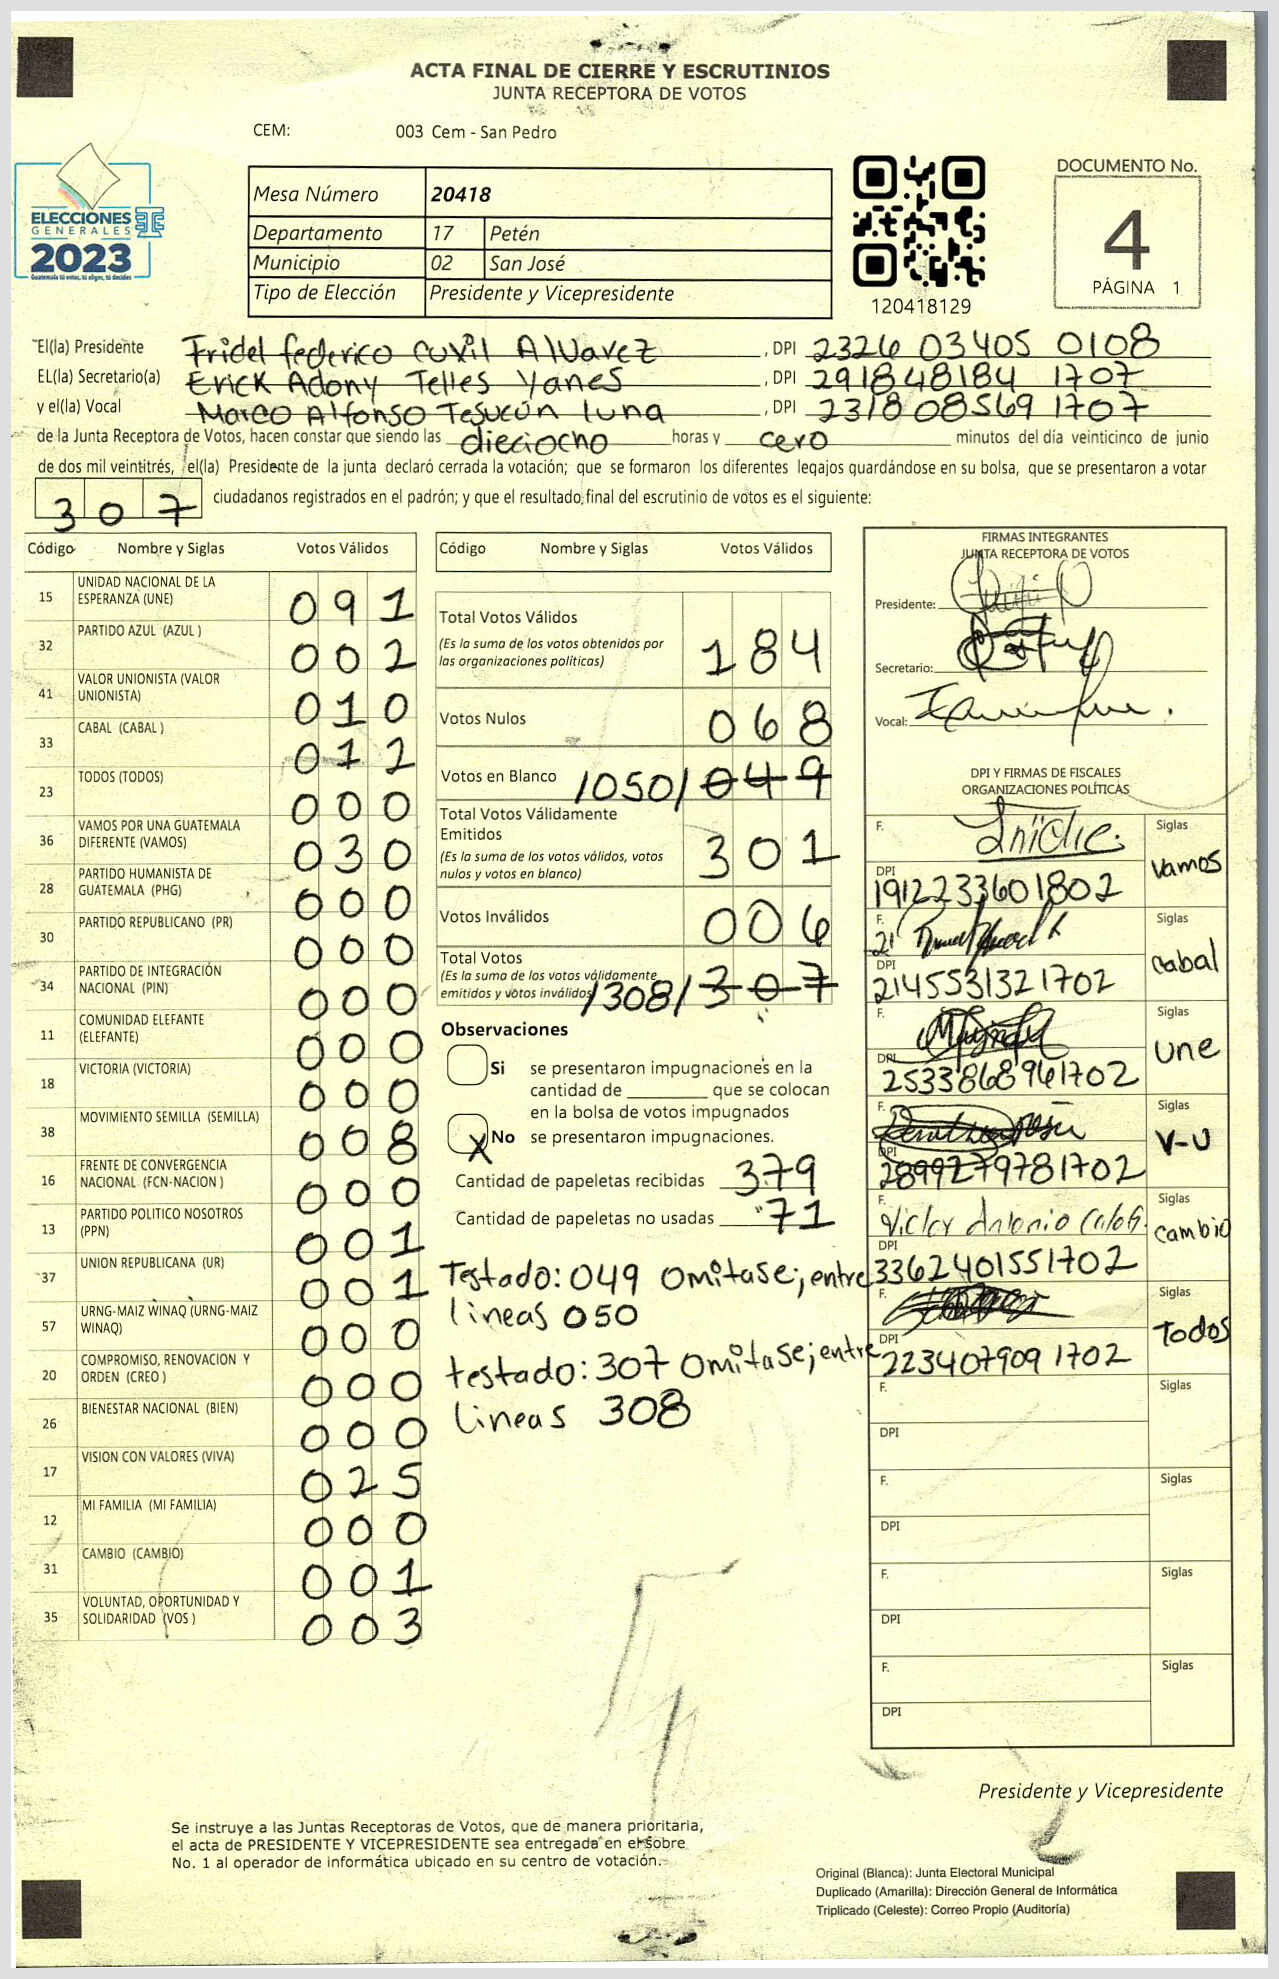 ACTA FINAL DE CIERRE Y ESCRUTINIOS
JUNTA RECEPTORA DE VOTOS
CEM: 003 Cem - San Pedro
ELECCIONES
GENERALES
2023
Guatemala tú votas, tú eliges, tú decides
Mesa Número 20418
Departamento 17 Petén
Municipio 02 San José
Tipo de Elección Presidente y Vicepresidente
120418129
DOCUMENTO No.
4
PÁGINA 1
El(la) Presidente Fridel federico cuxil Alvarez, DPI 2326 03405 0108
EL(la) Secretario(a) Erick Adony Telles Yanes, DPI 291848184 1707
y el(la) Vocal Marco Alfonso Tesucún luna, DPI 2318 08569 1707
de la Junta Receptora de Votos, hacen constar que siendo las dieciocho horas y cero minutos del día veinticinco de junio
de dos mil veintitrés, el(la) Presidente de la junta declaró cerrada la votación; que se formaron los diferentes legajos guardándose en su bolsa, que se presentaron a votar
307 ciudadanos registrados en el padrón; y que el resultado final del escrutinio de votos es el siguiente:
Código Nombre y Siglas Votos Válidos
15 UNIDAD NACIONAL DE LA ESPERANZA (UNE) 091
32 PARTIDO AZUL (AZUL ) 002
41 VALOR UNIONISTA (VALOR UNIONISTA) 010
33 CABAL (CABAL ) 012
23 TODOS (TODOS) 000
36 VAMOS POR UNA GUATEMALA DIFERENTE (VAMOS) 030
28 PARTIDO HUMANISTA DE GUATEMALA (PHG) 000
30 PARTIDO REPUBLICANO (PR) 000
34 PARTIDO DE INTEGRACIÓN NACIONAL (PIN) 000
11 COMUNIDAD ELEFANTE (ELEFANTE) 000
18 VICTORIA (VICTORIA) 000
38 MOVIMIENTO SEMILLA (SEMILLA) 008
16 FRENTE DE CONVERGENCIA NACIONAL (FCN-NACION ) 000
13 PARTIDO POLITICO NOSOTROS (PPN) 001
37 UNION REPUBLICANA (UR) 001
57 URNG-MAIZ WINAQ (URNG-MAIZ WINAQ) 000
20 COMPROMISO, RENOVACION Y ORDEN (CREO ) 000
26 BIENESTAR NACIONAL (BIEN) 000
17 VISION CON VALORES (VIVA) 025
12 MI FAMILIA (MI FAMILIA) 000
31 CAMBIO (CAMBIO) 001
35 VOLUNTAD, OPORTUNIDAD Y SOLIDARIDAD (VOS ) 003
Código Nombre y Siglas Votos Válidos
Total Votos Válidos 184
(Es la suma de los votos obtenidos por
las organizaciones políticas)
Votos Nulos 068
Votos en Blanco /050/ 049
Total Votos Válidamente
Emitidos 301
(Es la suma de los votos válidos, votos
nulos y votos en blanco)
Votos Inválidos 006
Total Votos
(Es la suma de los votos válidamente
emitidos y votos inválidos) /308/ 307
Observaciones
Si se presentaron impugnaciones en la
cantidad de ________ que se colocan
en la bolsa de votos impugnados
X No se presentaron impugnaciones.
Cantidad de papeletas recibidas 379
Cantidad de papeletas no usadas 71
Testado: 049 omitase; entre
lineas 050
testado: 307 omitase; entre
lineas 308
FIRMAS INTEGRANTES
JUNTA RECEPTORA DE VOTOS
Presidente:
Secretario:
Vocal:
DPI Y FIRMAS DE FISCALES
ORGANIZACIONES POLÍTICAS
F. Siglas
DPI 1912233601802 Vamos
F. Siglas
DPI 2145531321702 cabal
F. Siglas
DPI 2533868961702 une
F. Siglas
DPI 2899279781702 V-U
F. Victor Antonio Siglas
DPI 3362401551702 cambio
F. Siglas
DPI 2234079091702 Todos
F. Siglas
DPI
F. Siglas
DPI
F. Siglas
DPI
F. Siglas
DPI
Presidente y Vicepresidente
Se instruye a las Juntas Receptoras de Votos, que de manera prioritaria,
el acta de PRESIDENTE Y VICEPRESIDENTE sea entregada en el sobre
No. 1 al operador de informática ubicado en su centro de votación.
Original (Blanca): Junta Electoral Municipal
Duplicado (Amarilla): Dirección General de Informática
Triplicado (Celeste): Correo Propio (Auditoría)